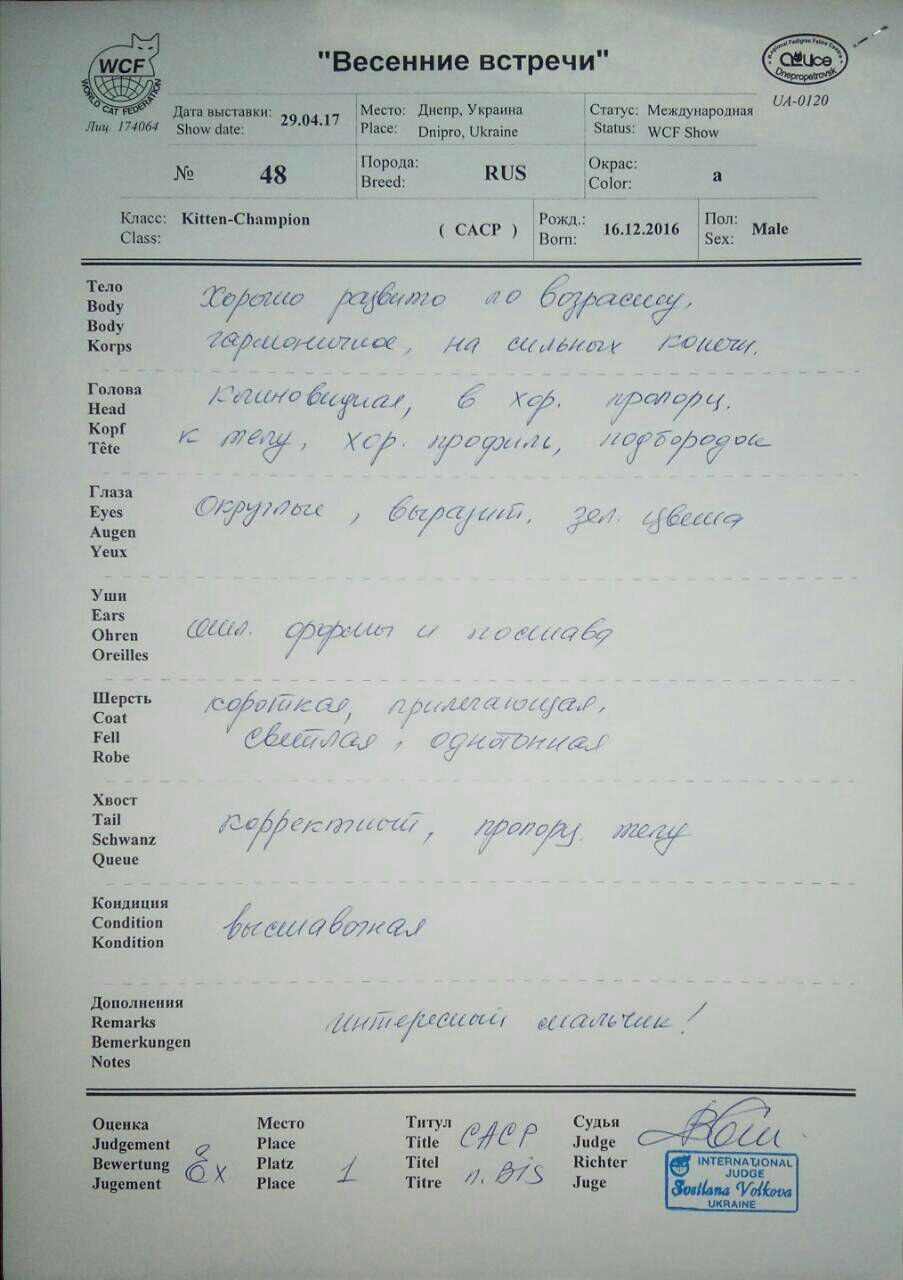 WCF
WORLD CAT FEDERATION
Лиц. 174064
"Весенние встречи"
Regional Pedigree Feline Centre
Alice
Dnepropetrovsk
UA-0120
Дата выставки: 29.04.17
Show date:
Место: Днепр, Украина
Place: Dnipro, Ukraine
Статус: Международная
Status: WCF Show
№ 48
Порода: RUS
Breed:
Окрас: a
Color:
Класс: Kitten-Champion
Class:
( CACP )
Рожд.: 16.12.2016
Born:
Пол: Male
Sex:
Тело
Body
Body
Korps
Хорошо развито по возрасту,
гармоничное, на сильных конечн.
Голова
Head
Kopf
Tête
Клиновидная, в хор. пропорц.
к телу, хор. профиль, подбородок
Глаза
Eyes
Augen
Yeux
Округлые, выразит. зел. цвета
Уши
Ears
Ohren
Oreilles
отл. формы и постава
Шерсть
Coat
Fell
Robe
короткая, прилегающая,
светлая, однотонная
Хвост
Tail
Schwanz
Queue
корректный, пропорц. телу
Кондиция
Condition
Kondition
выставочная
Дополнения
Remarks
Bemerkungen
Notes
Интересный мальчик!
Оценка
Judgement
Bewertung
Jugement
Ex
Место
Place
Platz
Place
1
Титул
Title
Titel
Titre
CACP
n. BIS
Судья
Judge
Richter
Juge
INTERNATIONAL
JUDGE
Svetlana Volkova
UKRAINE